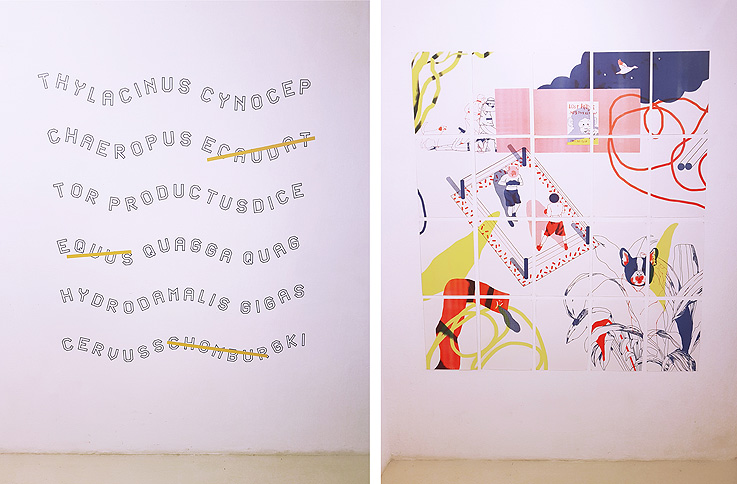 THYLACINUS CYNOCEP
CHAEROPUS ECAUDAT
TOR PRODUCTUSDICE
EQUUS QUAGGA QUAG
HYDRODAMALIS GIGAS
CERVUSSCHOMBURGKI